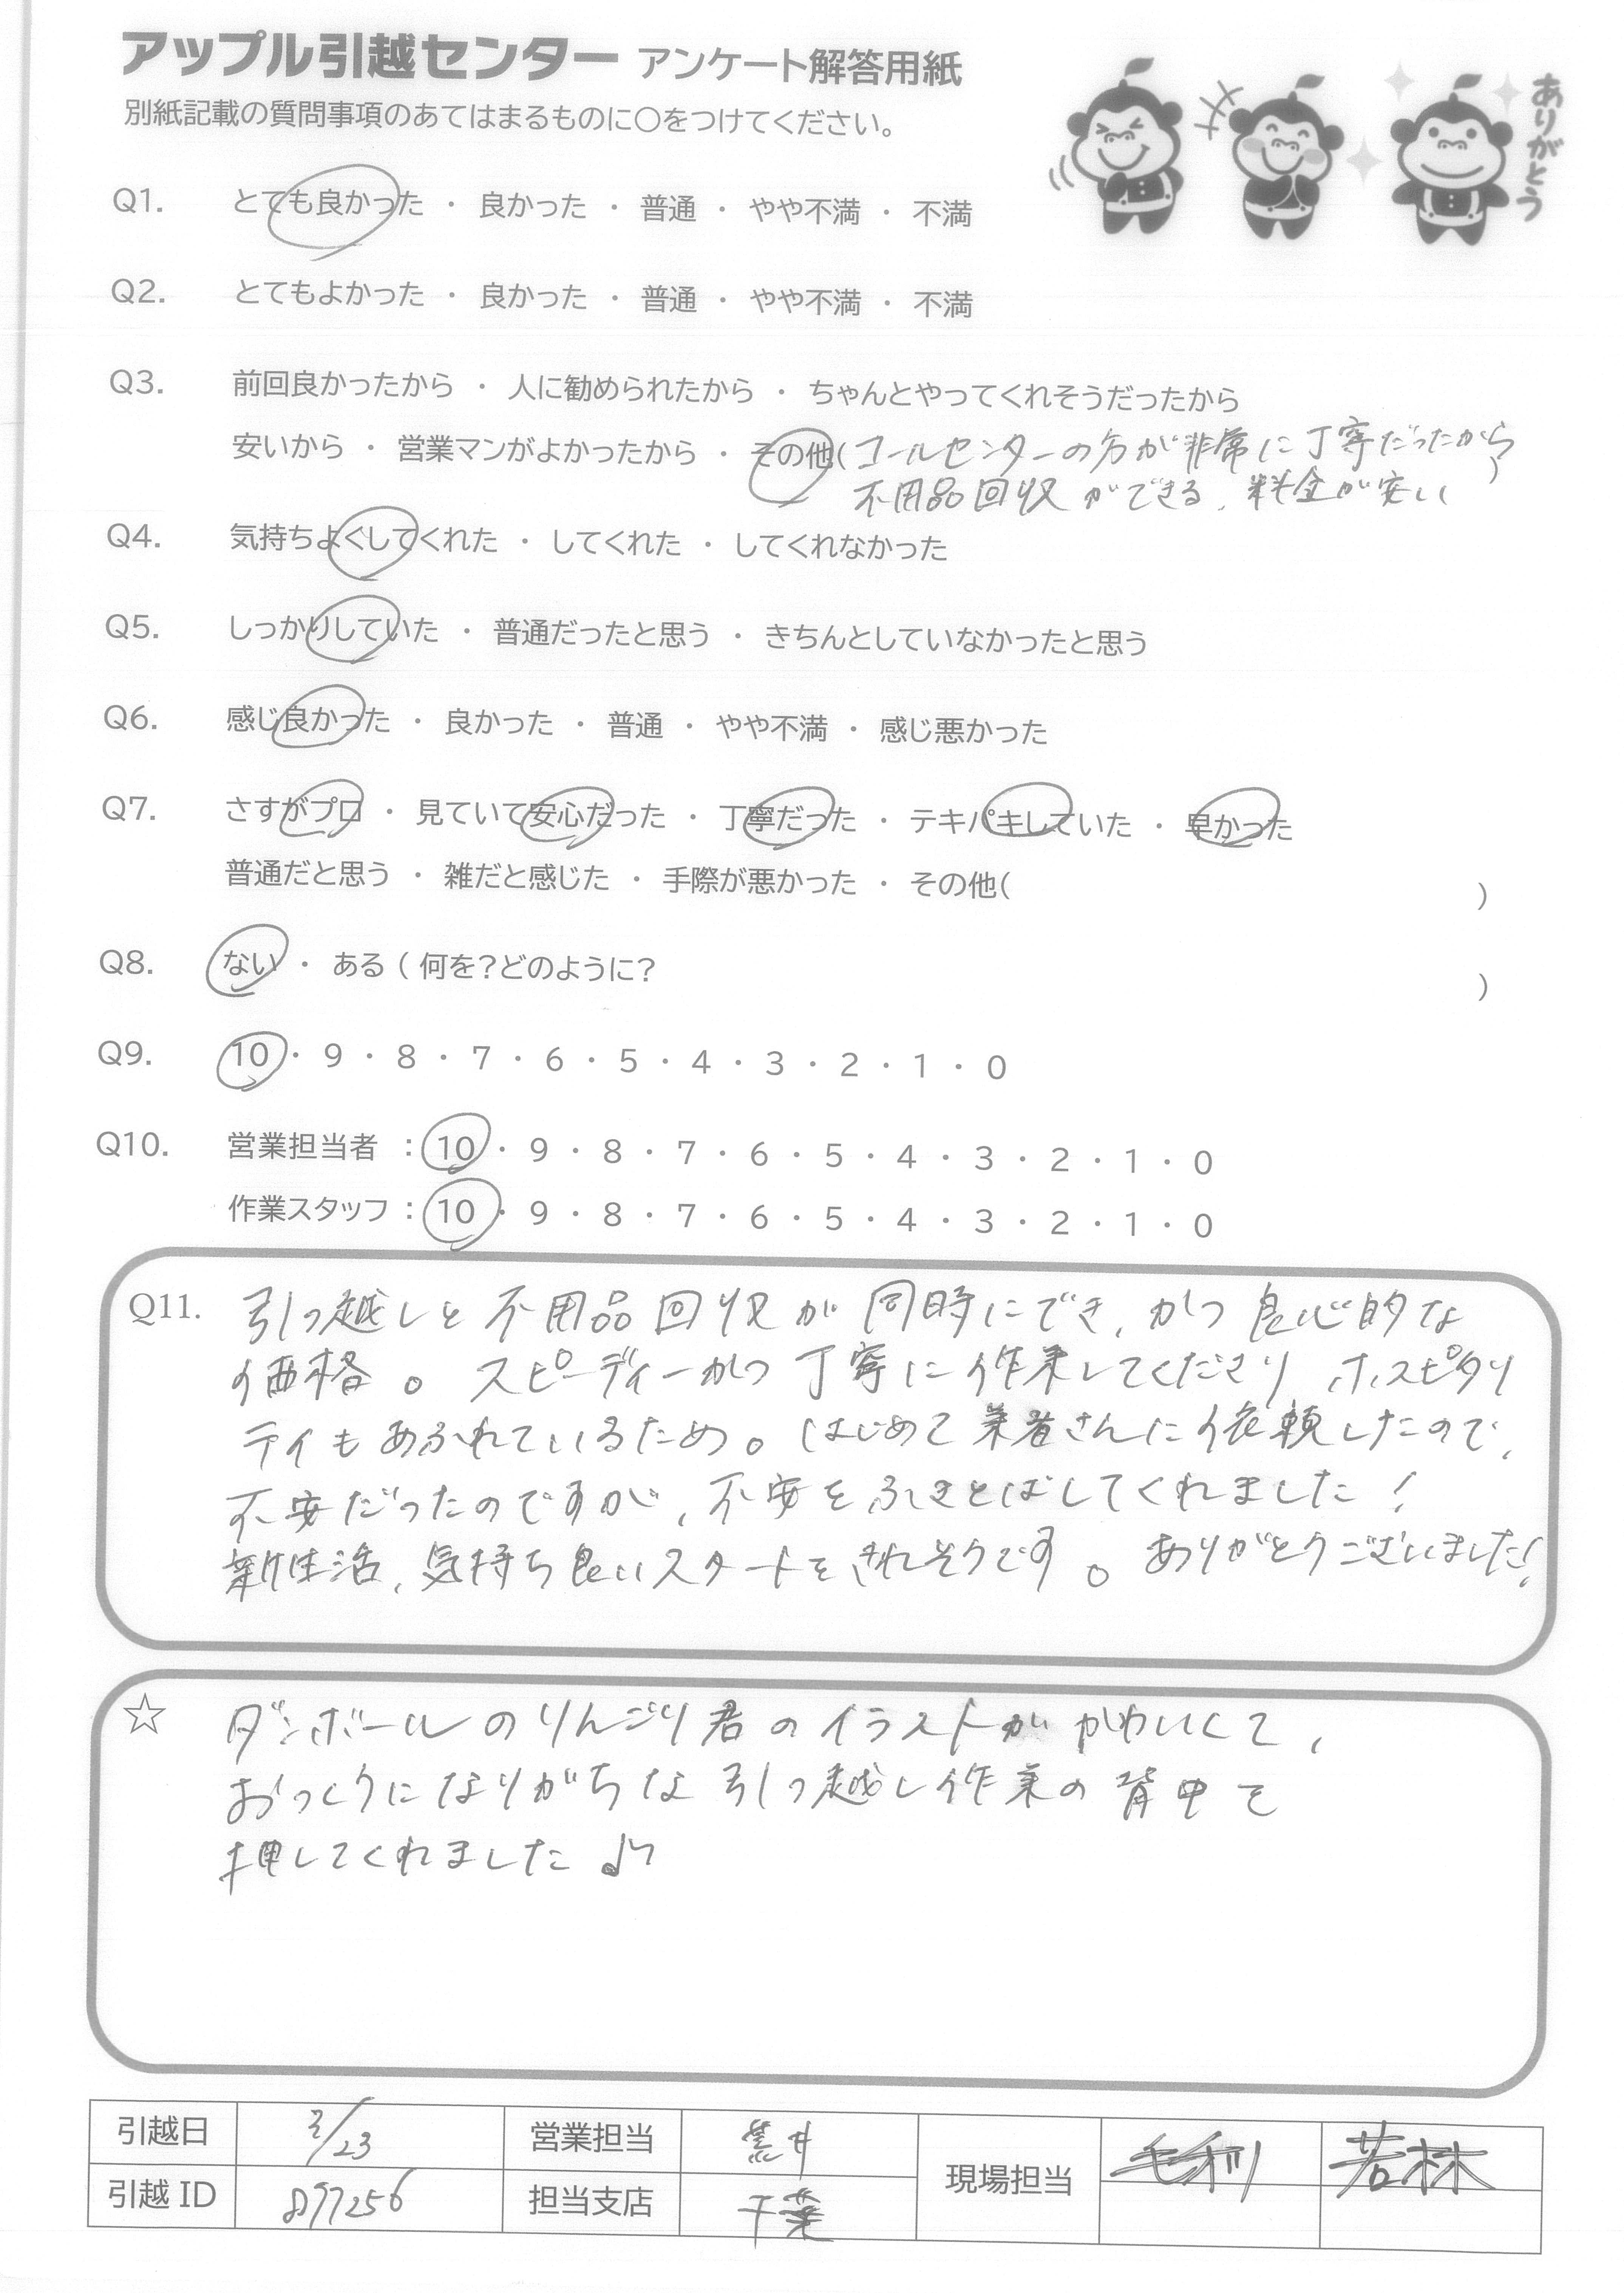 アップル引越センター アンケート解答用紙
別紙記載の質問事項のあてはまるものに○をつけてください。
ありがとう
Q1. とても良かった ・ 良かった ・ 普通 ・ やや不満 ・ 不満
Q2. とてもよかった ・ 良かった ・ 普通 ・ やや不満 ・ 不満
Q3. 前回良かったから ・ 人に勧められたから ・ ちゃんとやってくれそうだったから
安いから ・ 営業マンがよかったから ・ その他(コールセンターの方が非常に丁寧だったから
不用品回収ができる、料金が安い )
Q4. 気持ちよくしてくれた ・ してくれた ・ してくれなかった
Q5. しっかりしていた ・ 普通だったと思う ・ きちんとしていなかったと思う
Q6. 感じ良かった ・ 良かった ・ 普通 ・ やや不満 ・ 感じ悪かった
Q7. さすがプロ ・ 見ていて安心だった ・ 丁寧だった ・ テキパキしていた ・ 早かった
普通だと思う ・ 雑だと感じた ・ 手際が悪かった ・ その他( )
Q8. ない ・ ある ( 何を?どのように? )
Q9. 10 ・ 9 ・ 8 ・ 7 ・ 6 ・ 5 ・ 4 ・ 3 ・ 2 ・ 1 ・ 0
Q10. 営業担当者 : 10 ・ 9 ・ 8 ・ 7 ・ 6 ・ 5 ・ 4 ・ 3 ・ 2 ・ 1 ・ 0
作業スタッフ : 10 ・ 9 ・ 8 ・ 7 ・ 6 ・ 5 ・ 4 ・ 3 ・ 2 ・ 1 ・ 0
Q11. 引っ越しと不用品回収が同時にでき、かつ良心的な
価格。スピーディーかつ丁寧に作業してくださり、ホスピタリ
ティもあふれているため。はじめて業者さんに依頼したので、
不安だったのですが、不安をふきとばしてくれました!
新生活、気持ち良いスタートをきれそうです。ありがとうございました!
☆ ダンボールのりんごり君のイラストがかわいくて、
おっくうになりがちな引っ越し作業の背中を
押してくれました♪
引越日 /23 営業担当 黒井 現場担当 毛利 若林
引越 ID 897256 担当支店 千葉